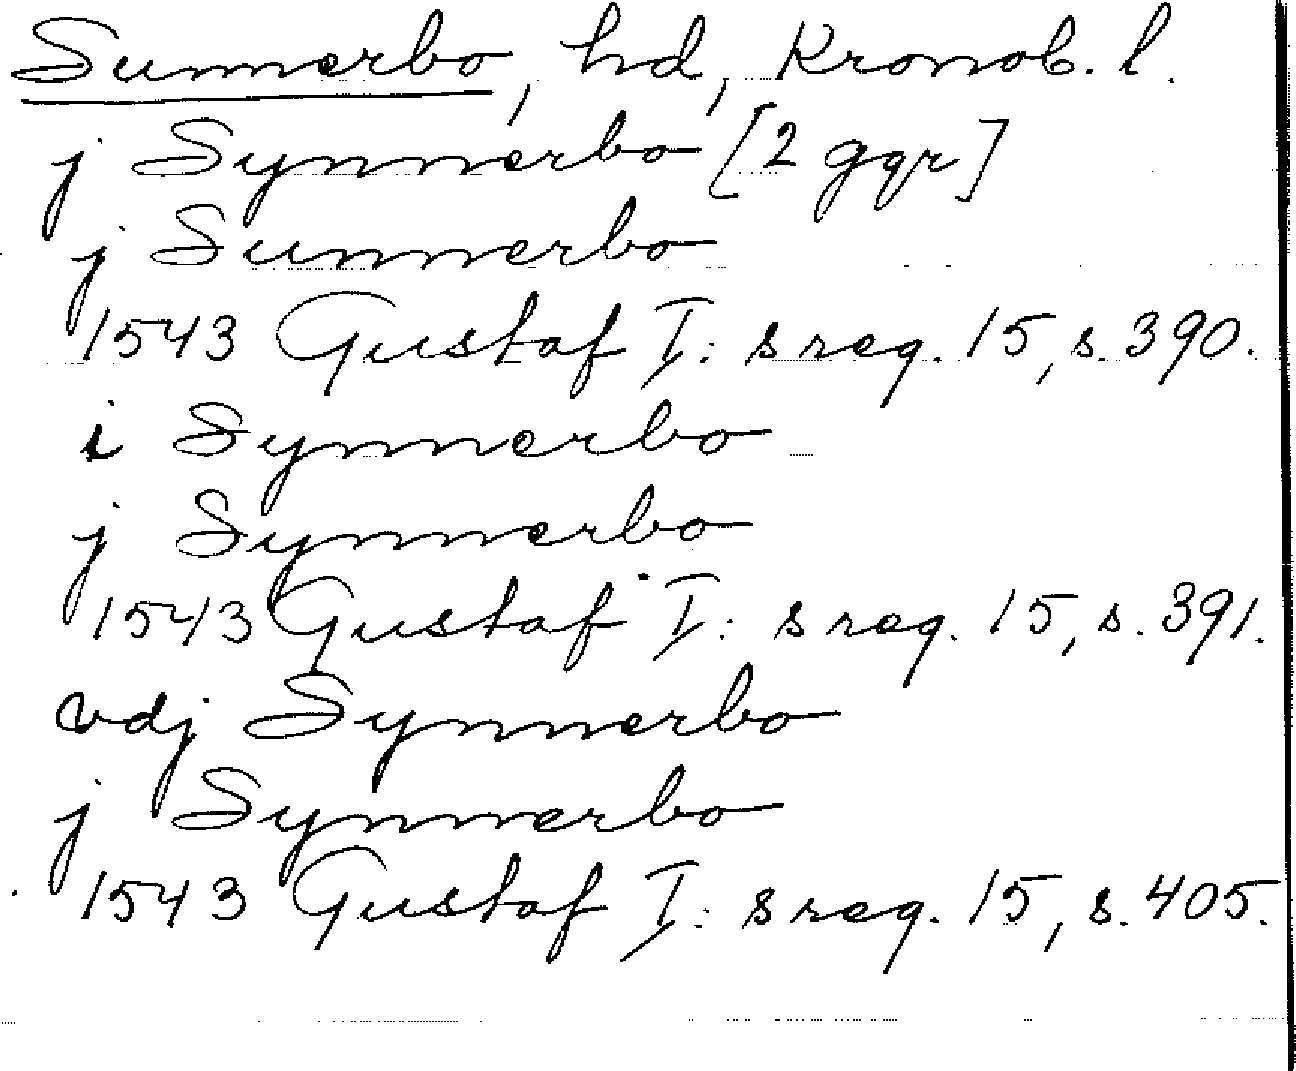 Sunnerbo, hd, Kronob. l.
j Synnerbo [2 ggr]
j Sunnerbo
1543 Gustaf I: s reg. 15, s. 390.
i Synnerbo
j Synnerbo
1543 Gustaf I: s reg. 15, s. 391.
vdj Synnerbo
j Synnerbo
1543 Gustaf I: s reg. 15, s. 405.